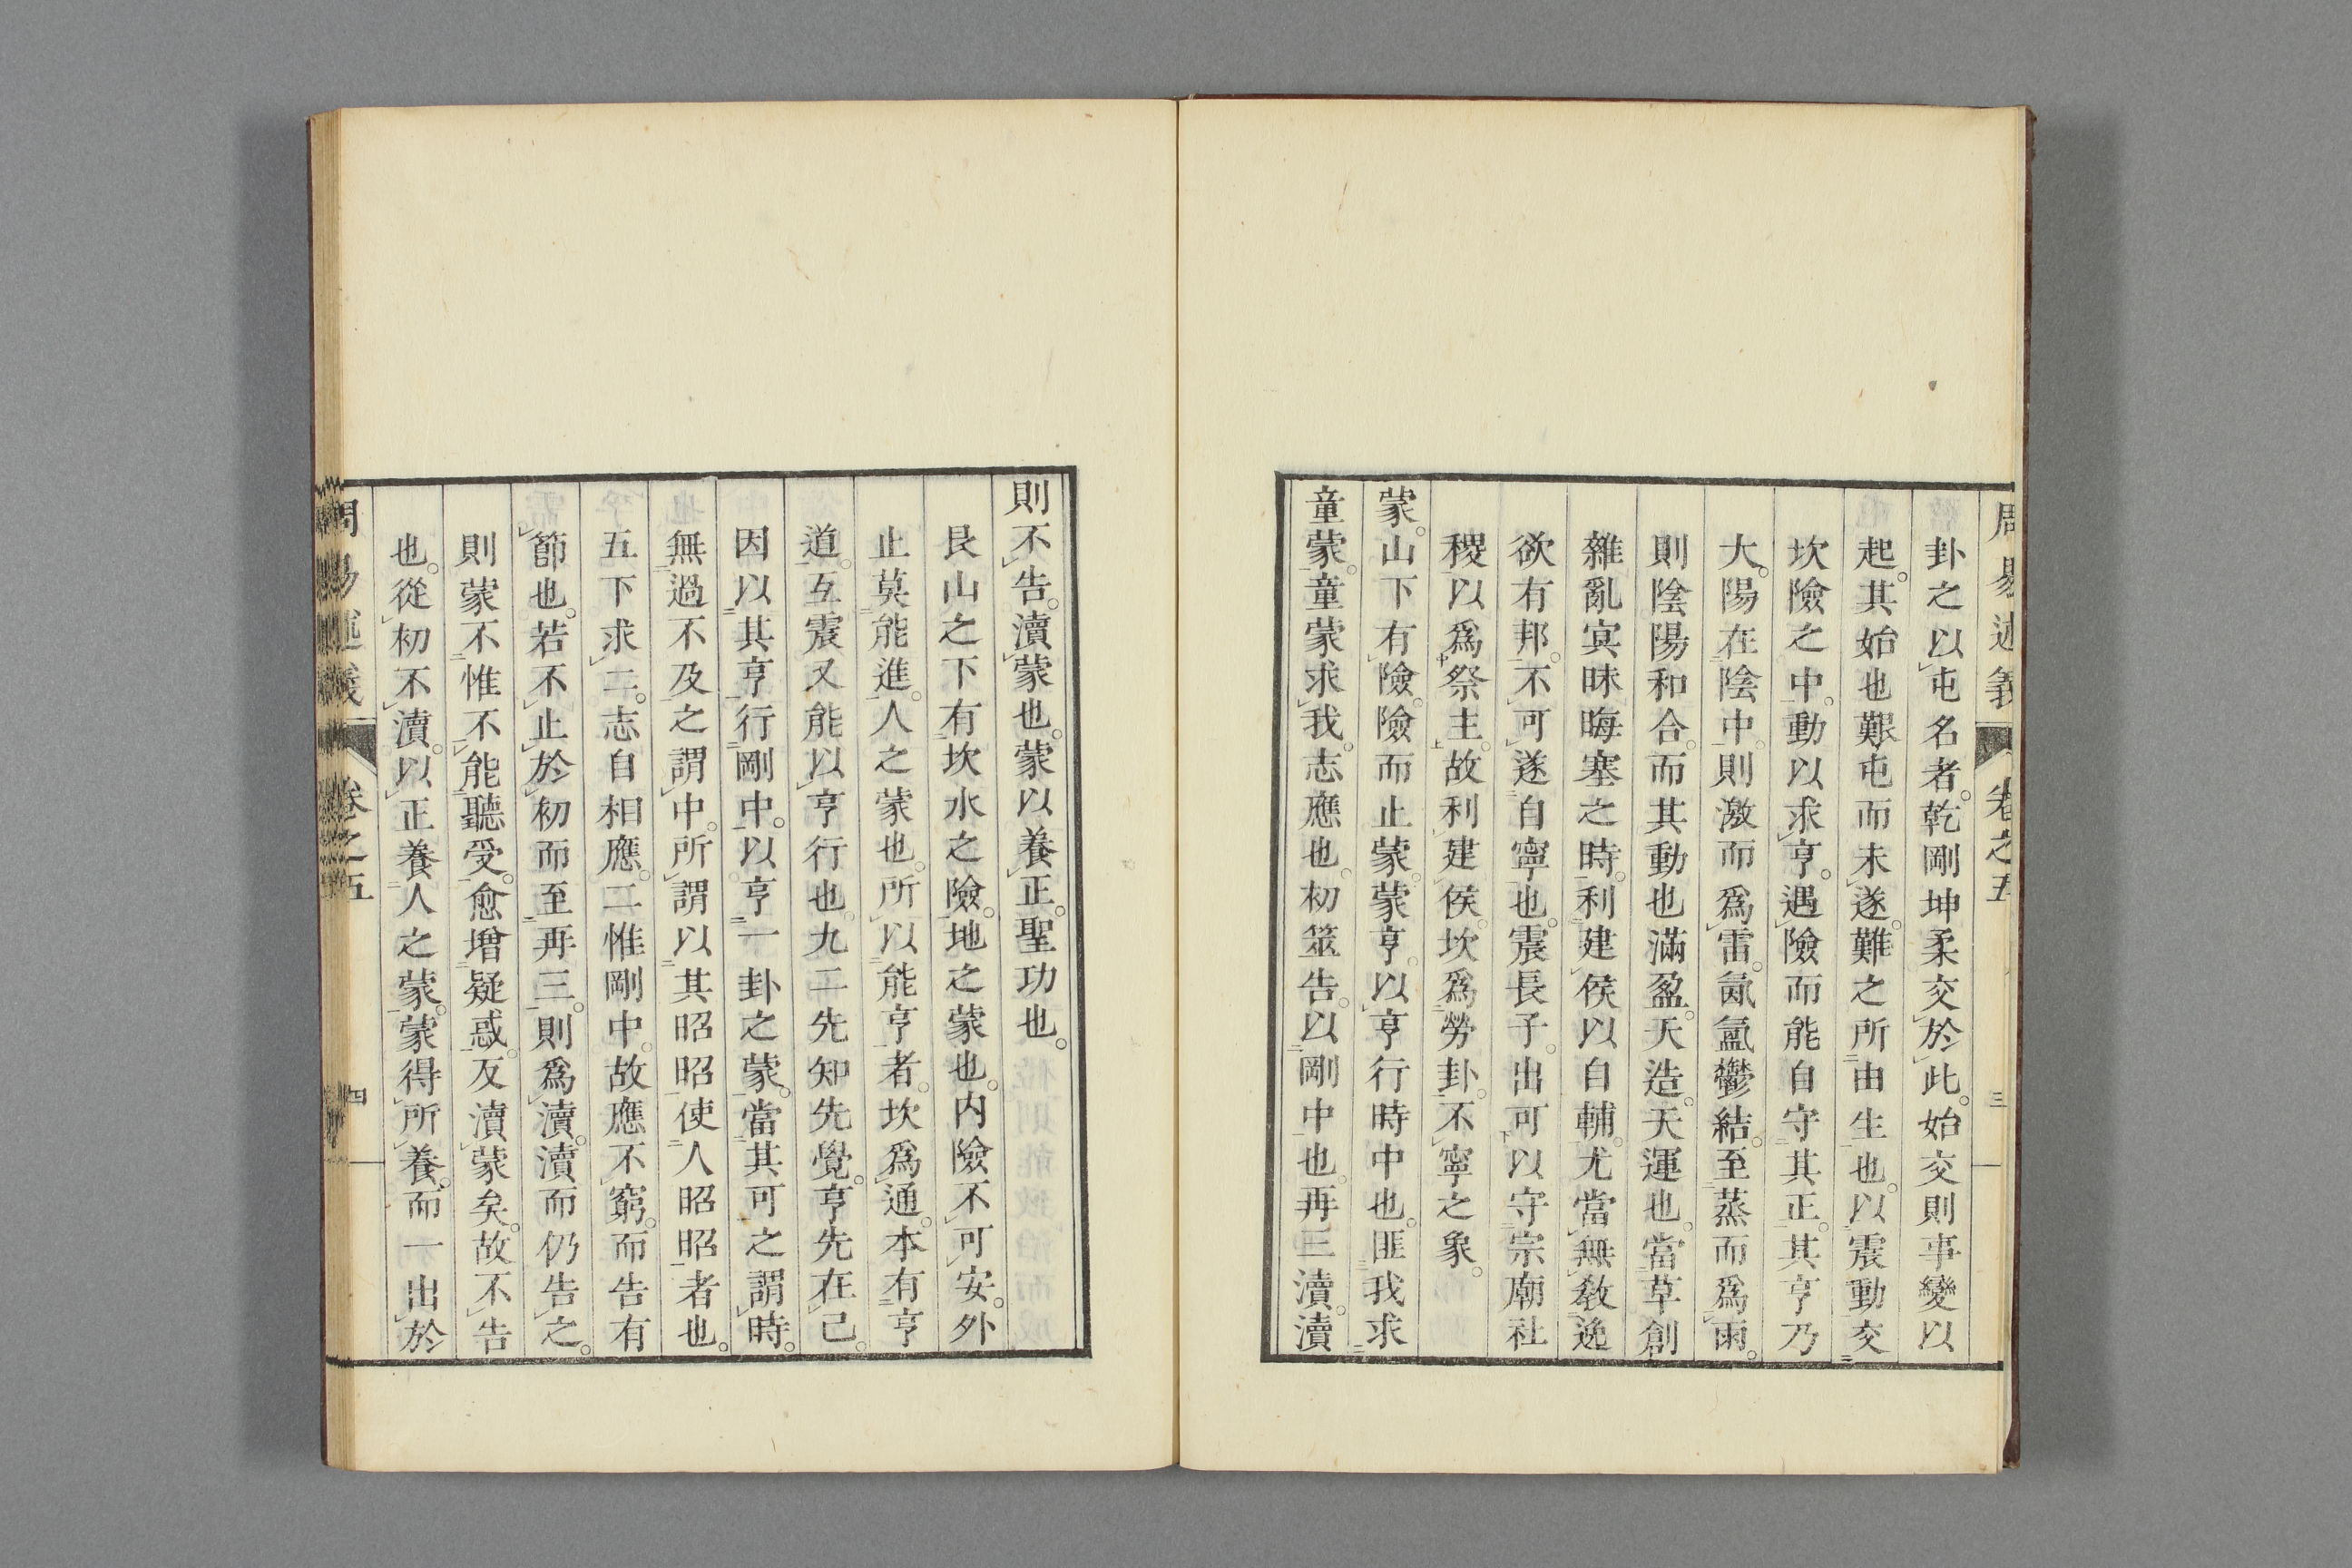 周易述義 卷之五 三
卦之以屯名者。乾剛坤柔交於此。始交則事變以
起。其始也艱屯而未遂。難之所由生也。以震動交
坎險之中。動以求亨。遇險而能自守其正。其亨乃
大。陽在陰中。則激而爲雷。氤氳鬱結。至蒸而爲雨。
則陰陽和合。而其動也滿盈。天造。天運也。當草創
雜亂冥昧晦塞之時。利建侯以自輔。尤當無敎逸
欲有邦。不可遂自寧也。震長子。出可以守宗廟社
稷以爲祭主。故利建侯。坎爲勞卦。不寧之象。
蒙。山下有險。險而止蒙。蒙亨。以亨行時中也。匪我求
童蒙。童蒙求我。志應也。初筮告。以剛中也。再三瀆。瀆
則不告。瀆蒙也。蒙以養正。聖功也。
艮山之下有坎水之險。地之蒙也。内險不可安。外
止莫能進。人之蒙也。所以能亨者。坎爲通。本有亨
道。互震又能以亨行也。九二先知先覺。亨先在己。
因以其亨行剛中。以亨一卦之蒙。當其可之謂時。
無過不及之謂中。所謂以其昭昭使人昭昭者也。
五下求二。志自相應。二惟剛中。故應不窮。而告有
節也。若不止於初而至再三。則爲瀆。瀆而仍告之。
則蒙不惟不能聽受。愈增疑惑。反瀆蒙矣。故不告
也。從初不瀆。以正養人之蒙。蒙得所養。而一出於
周易述義 卷之五 四